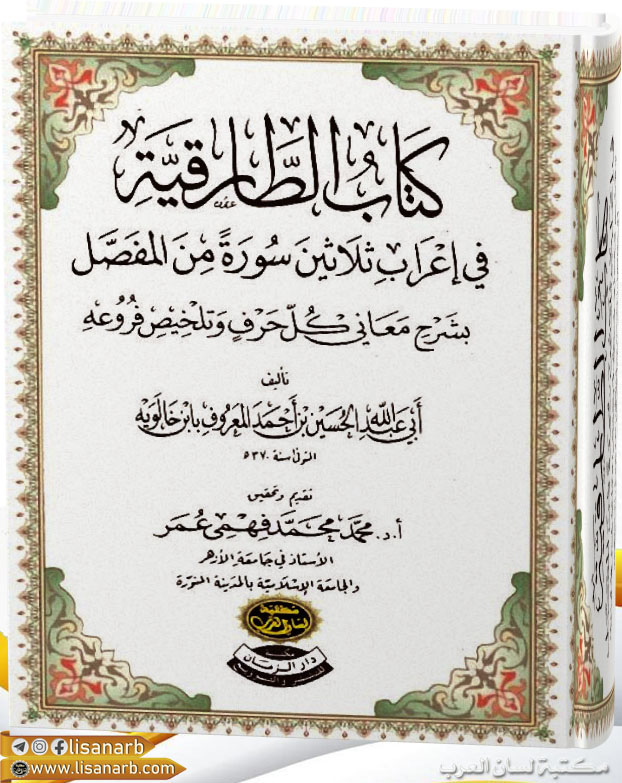 كتاب الطارقية
في إعراب ثلاثين سورة من المفصل
بشرح معاني كل حرف وتلخيص فروعه
تأليف
أبي عبد الله الحسين بن أحمد المعروف بابن خالويه
المتوفى سنة ٣٧٠هـ
تقديم وتحقيق
أ.د. محمد محمد فهمي عمر
الأستاذ في جامعة الأزهر
والجامعة الإسلامية بالمدينة المنورة
مكتبة
لسان العرب
مكتبة
دار الزمان
للنشر والتوزيع
lisanarb
www.lisanarb.com
مكتبة لسان العرب